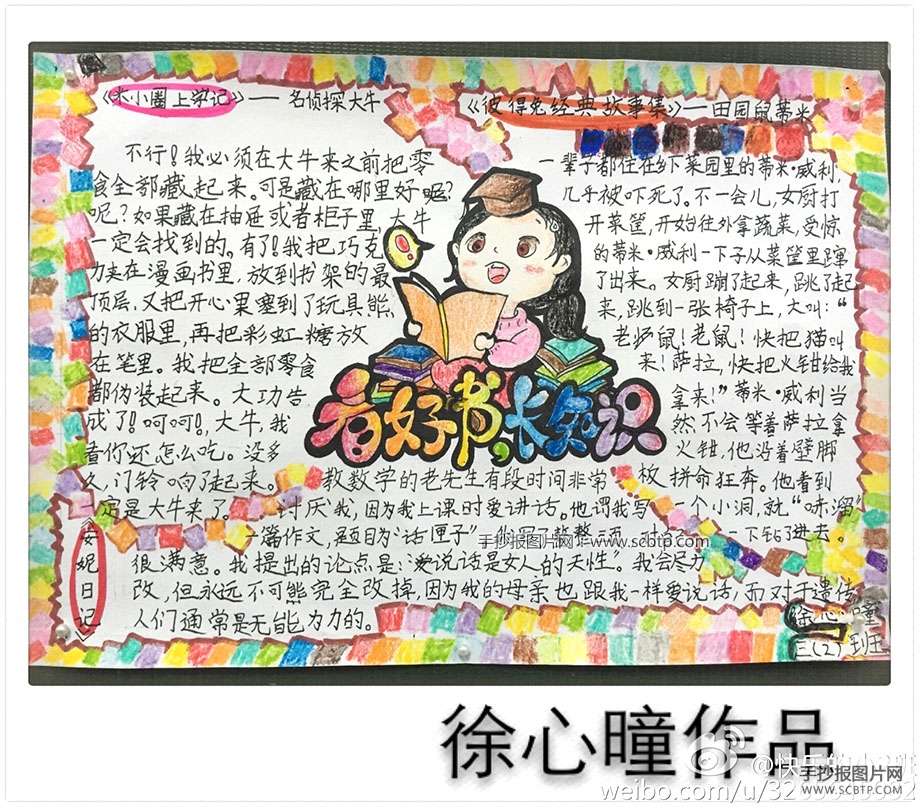 《米小圈上学记》——名侦探大牛
不行！我必须在大牛来之前把零
食全部藏起来。可是藏在哪里好呢？
呢？如果藏在抽屉或者柜子里，大牛
一定会找到的。有了！我把巧克
力夹在漫画书里，放到书架的最
顶层，又把开心果塞到了玩具熊
的衣服里，再把彩虹糖放
在笔里。我把全部零食
都伪装起来。大功告
成了！呵呵！，大牛，我
看你还怎么吃。没多
久，门铃响了起来。
一定是大牛来了
《彼得兔经典故事集》——田园鼠蒂米
一辈子都住在乡下菜园里的蒂米·威利，
几乎被吓死了。不一会儿，女厨打
开菜筐，开始往外拿蔬菜，受惊
的蒂米·威利一下子从菜筐里蹿
了出来。女厨蹦了起来，跳了起
来，跳到一张椅子上，大叫：“
老鼠！老鼠！快把猫叫
来！萨拉，快把火钳给我
拿来！”蒂米·威利当
然不会等着萨拉拿
火钳，他沿着壁脚
板拼命狂奔。他看到
一个小洞，就“哧溜”
一下钻了进去。
看好书，长知识
安妮日记
教数学的老先生有段时间非常
讨厌我，因为我上课时爱讲话。他罚我写
一篇作文，题目为“话匣子”
很满意。我提出的论点是：爱说话是女人的天性。我会尽力
改，但永远不可能完全改掉，因为我的母亲也跟我一样爱说话，而对于遗传
人们通常是无能为力的。
手抄报图片网 www.scbtp.com
徐心瞳
三（2）班
徐心曈作品
手抄报图片网
WWW.SCBTP.COM